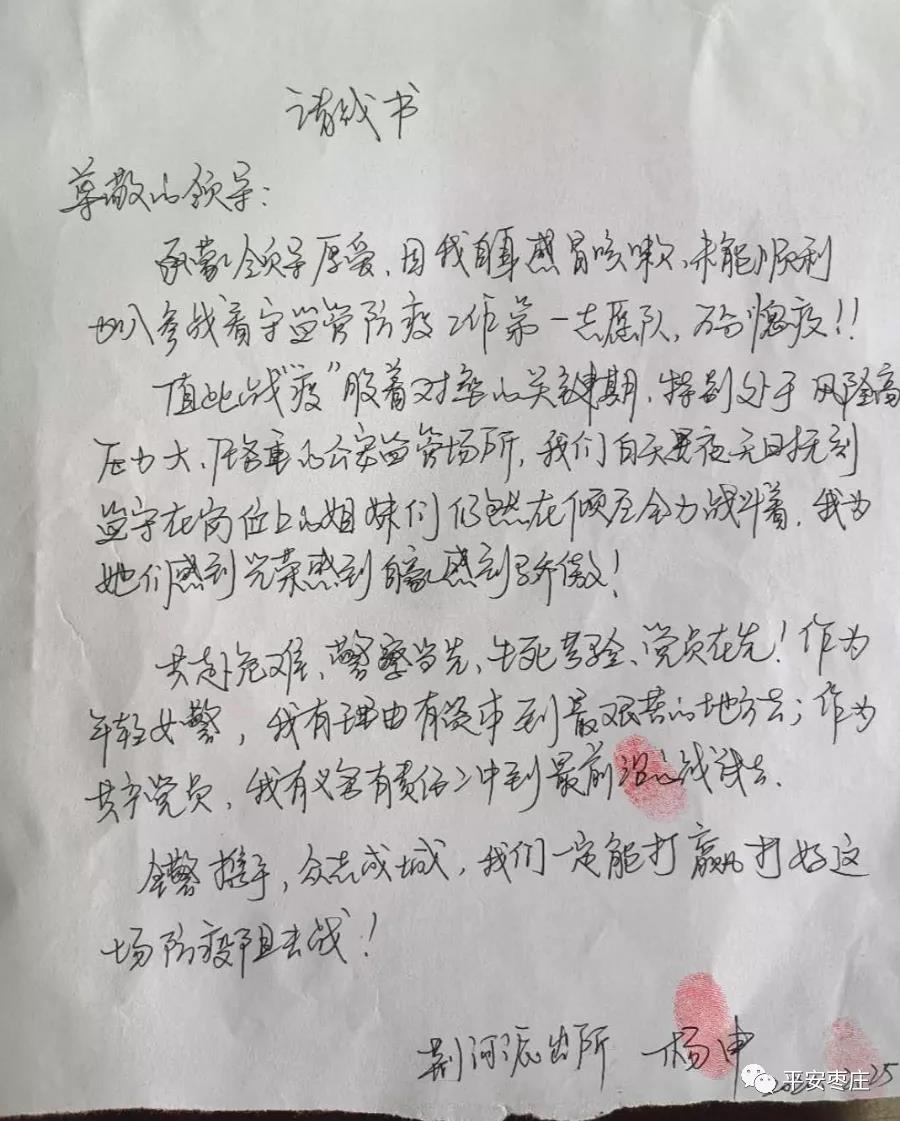 请战书
尊敬的领导：
承蒙领导厚爱，因我自身感冒咳嗽、未能顺利
加入参战看守监管防疫工作第一志愿队，万分愧疚！！
值此战“疫”胶着对垒的关键期，特别处于风险高
压力大、任务重的公安监管场所，我们白天黑夜无时无刻
坚守在岗位上的姐妹们仍然在倾尽全力战斗着，我为
她们感到光荣感到自豪感到骄傲！
共赴危难、警察当先、生死考验、党员在先！作为
年轻女警，我有理由有资本到最艰苦的地方去；作为
共产党员，我有义务有责任冲到最前沿的战线去.
全警携手，众志成城，我们一定能打赢打好这
场防疫阻击战！
荆河派出所 杨申
25
平安枣庄